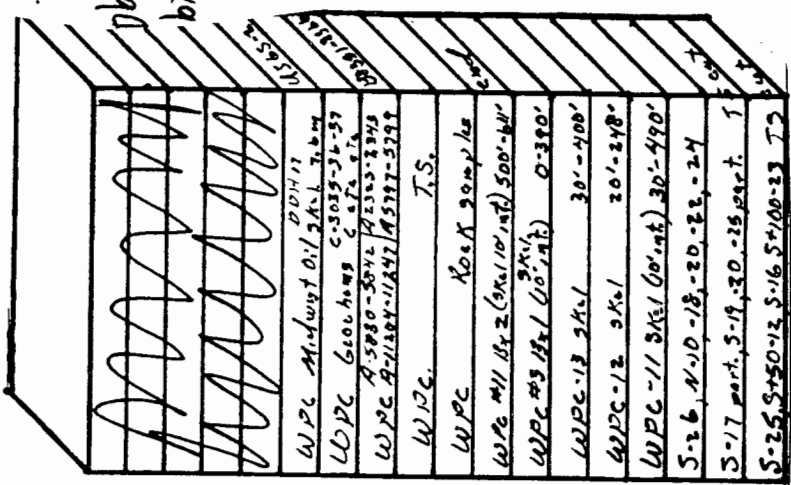 Db
bi
4565-2
WPC Midwest Oil DDH17 skel
WPC Geochems C-3035-36-37
WPC A-5880-5842 A2323-2343
A-11204-11241 A5797-5799
WPC. T.S.
WPC Rock samples
end
WPC #11 Bx 2 (skel 10' int.) 500'-611'
WPC #3 Bx 1 skel (10' int.) 0-390'
WPC-13 skel 30'-400'
WPC-12 skel 20'-248'
WPC-11 skel (10' int.) 30'-490'
S-26, N-10-18,-20,-22,-24
S-17 part. S-19,-20,-25 part. TS
S-25, S+50-12, S-16 S+100-23 TS